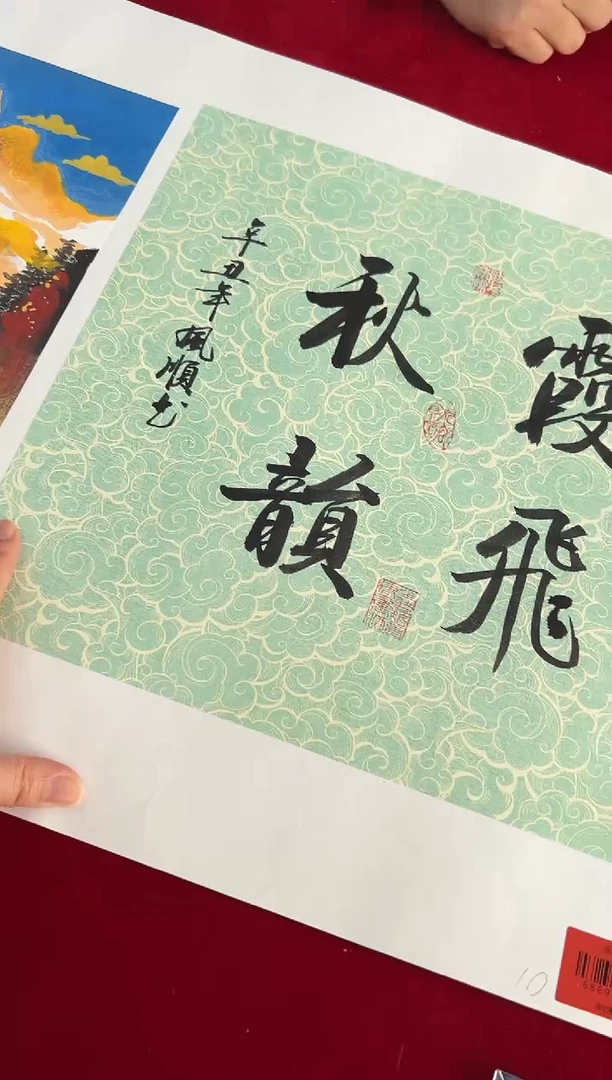 霞飛
秋韻
辛丑年
風順书
10